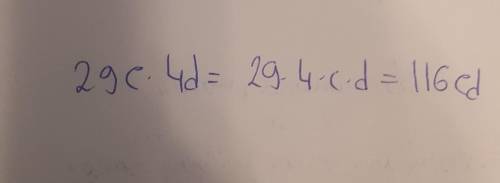 29c · 4d = 29 · 4 · c · d = 116cd